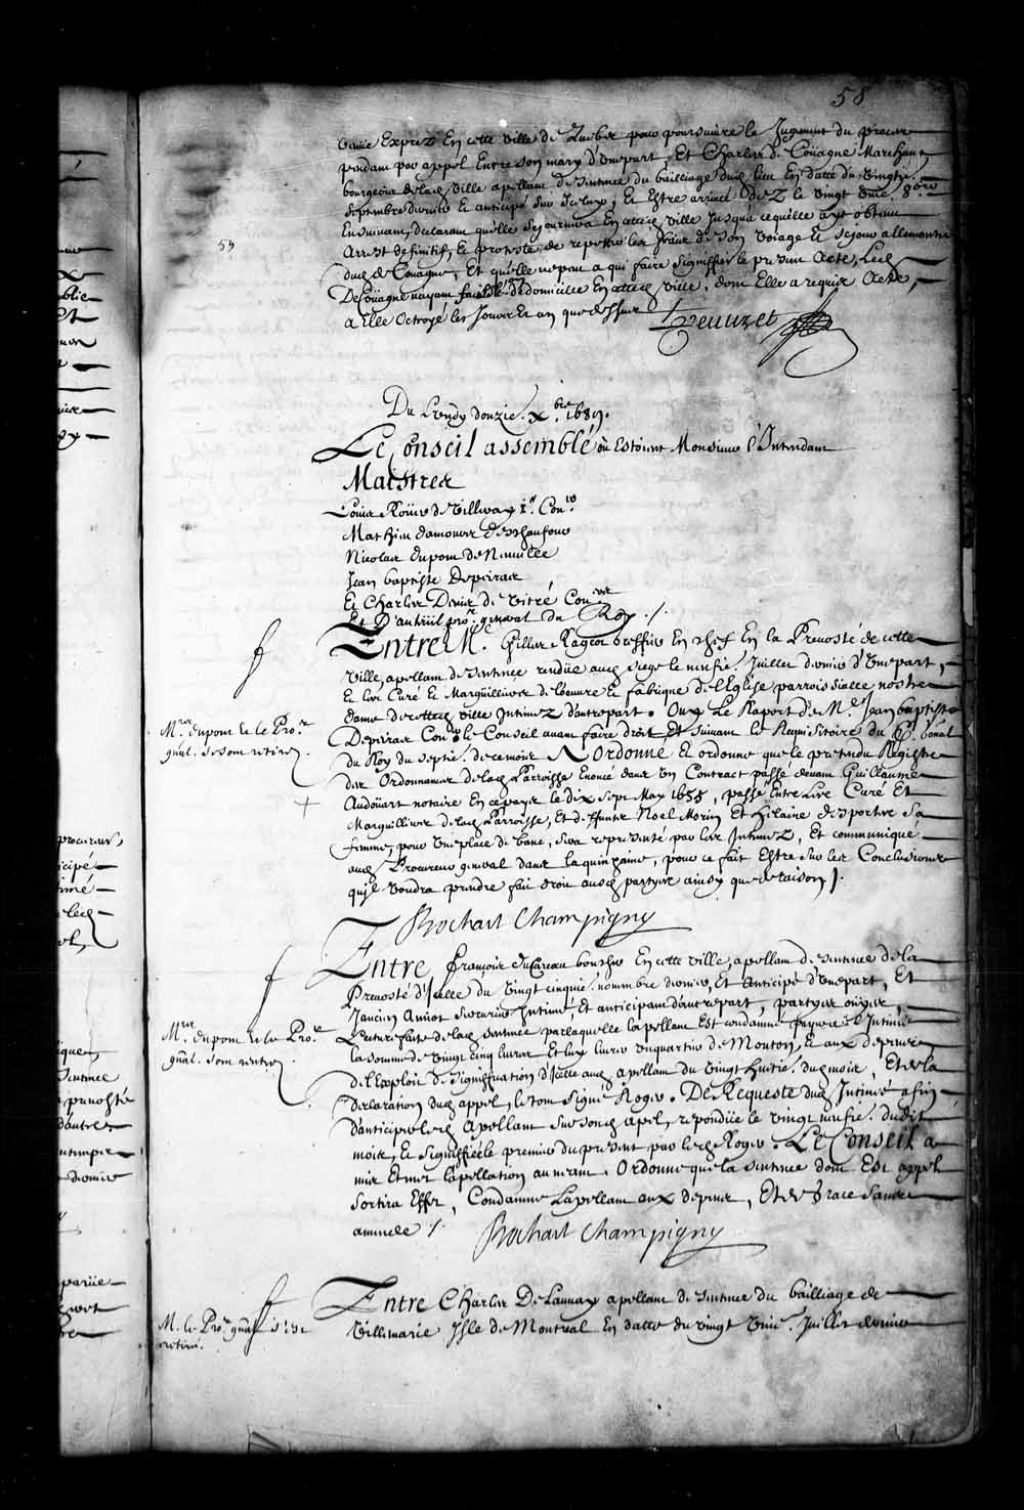 58
venüe Exprez En cette ville de Quebec pour poursuivre le Jugement du procez
pendant par appel Entre son mary d'Unepart, Et Charles De Coüagne Marchant
bourgeois delad. Ville apellant de sentence du bailliage dud. lieu En datte du Vingt
Septembre dernier Et anticipé sur Iceluy, Et Estre arrivée Dez le Vingt Unie. 8bre
Ensuivant, declarant qu'elle sejournera En cetted. ville Jusqu'a cequ'elle ayt obtenu
Arrest definitif, Et proteste de repetter les fraix de son voiage Et sejour allencontre
dud. de Coüagne, Et qu'elle ne peut a qui faire signiffier le present Acte, Led.
De Coüagne n'ayant de domicille En cetted. ville, dont Elle a requis Acte,
a Elle Octroyé les Jour et an que dessus Peuuret
59
Du Lundy douzie. Xbre 1689.
Le Conseil assemblé où Estoient Monsieur l'Intendant
Maistres
Louis Roüer de Villeray 1er. Coner.
Mathieu damours Deschaufour
Nicolas dupont de Neuville
Jean baptiste Depeiras
Et Charles Denis de Vitré Coners
Et D'auteüil pror. general du Roy ./.
Entre Me. Gilles Rageot Greffier En chef En la Prevosté de cette
Ville, apellant de sentence rendüe aud. siege le neufie. Juillet dernier d'Unepart,
Et les Curé Et Marguilliers de l'oeuvre Et fabrique de l'Eglise parroissialle nostre
dame de cetted. ville Intimez d'autrepart. Ouy Le Raport de Me. Jean baptiste
Depeiras Coner. le Conseil avant faire droit Et suivant Le Requisitoire du P. General
du Roy du septie. decemois A Ordonné Et ordonne que le pretendu Registre
des Ordonnances delad. Parroisse Enoncé dans un Contract passé devant Guillaume
Audoüart notaire En ce pays le dix Sept May 1655, passé Entre Les Curé Et
Marguilliers delad. Parroisse, Et deffunts Noel Morin Et Helaine desportes Sa
femme, pour Une place de banc, sera representé par les Intimez, Et communiqué
aud. Procureur general dans la quinzaine, pour ce fait Estre sur les Conclusions
qu'Il Voudra prendre fait droit ausd. partyes ainsy que de raison ./.
Mrs. dupont Et le Pror.
gñal. se sont retirez
Bochart Champigny
Entre François ducarreau boucher En cette ville, apellant de sentence de la
Prevosté d'Icelle du Vingt cinquie. novembre dernier, Et Anticipé d'Unepart, Et
Jancien Amiot serurier Intimé, Et anticipant d'autrepart, partyes oüyes,
Lecture faite de lad. sentence par laquelle l'apellant Est condamné payer a l'Intimé
la somme de vingt cinq livres Et luy livrer Un quartier de Mouton, Et aux depens
de l'Exploit de signiffication d'Icelle aud. apellant du Vingt huitie. dud. mois, Et de la
declaration dud. appel, le tout signé Roger. De Requeste dud. Intimé afin
d'anticiper led. Apellant sur sond. apel, repondüe le Vingt neufie. dudit
mois, Et signiffiée le premier du present par led. Roger. Le Conseil a
mis Et met l'apellation au neant. Ordonne que la sentence dont Est appel
sortira Effet, Condamne L'apellant aux depens, Et de grace sans
amende ./. Bochart Champigny
Mrs. dupont Et le Pror.
gñal. se sont retirez
Entre Charles De Launay apellant de sentence du bailliage de
Villemarie Isle de Montreal En datte du vingt Unie. Juillet dernier
M. le Pror. gñal s'est
retiré.